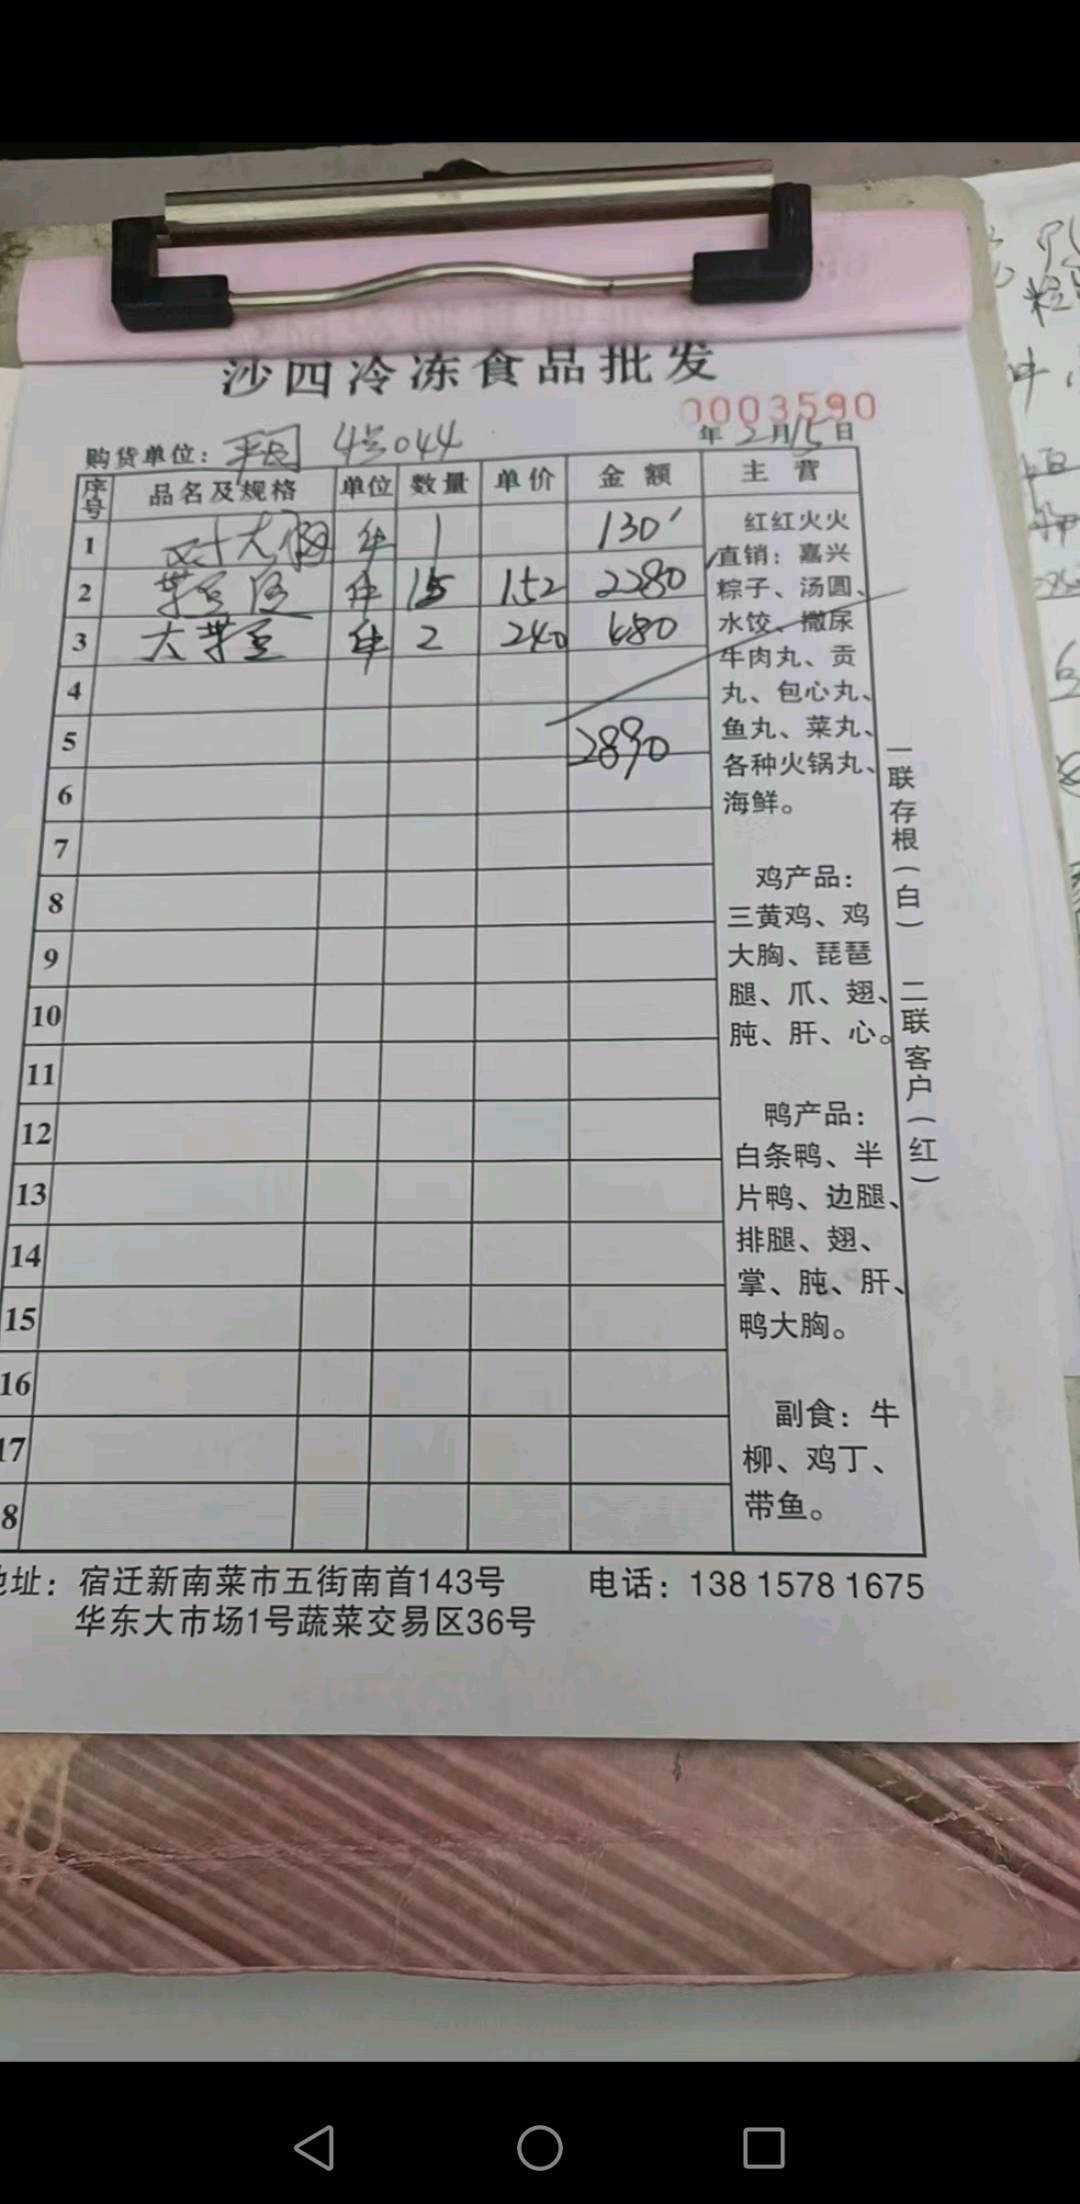 沙四冷冻食品批发
0003590
购货单位: 4号044 年2月15日
序号 品名及规格 单位 数量 单价 金额 主营
1 对大胸 件 1 130
2 件 15 152 2280
3 大 件 2 240 480
4
5 2890
6
7
8
9
10
11
12
13
14
15
16
17
8
红红火火
直销：嘉兴
粽子、汤圆、
水饺、撒尿
牛肉丸、贡
丸、包心丸、
鱼丸、菜丸、
各种火锅丸、
海鲜。
鸡产品：
三黄鸡、鸡
大胸、琵琶
腿、爪、翅、
肫、肝、心。
鸭产品：
白条鸭、半
片鸭、边腿、
排腿、翅、
掌、肫、肝、
鸭大胸。
副食：牛
柳、鸡丁、
带鱼。
一联存根(白) 二联客户(红)
地址：宿迁新南菜市五街南首143号 电话：138 1578 1675
华东大市场1号蔬菜交易区36号